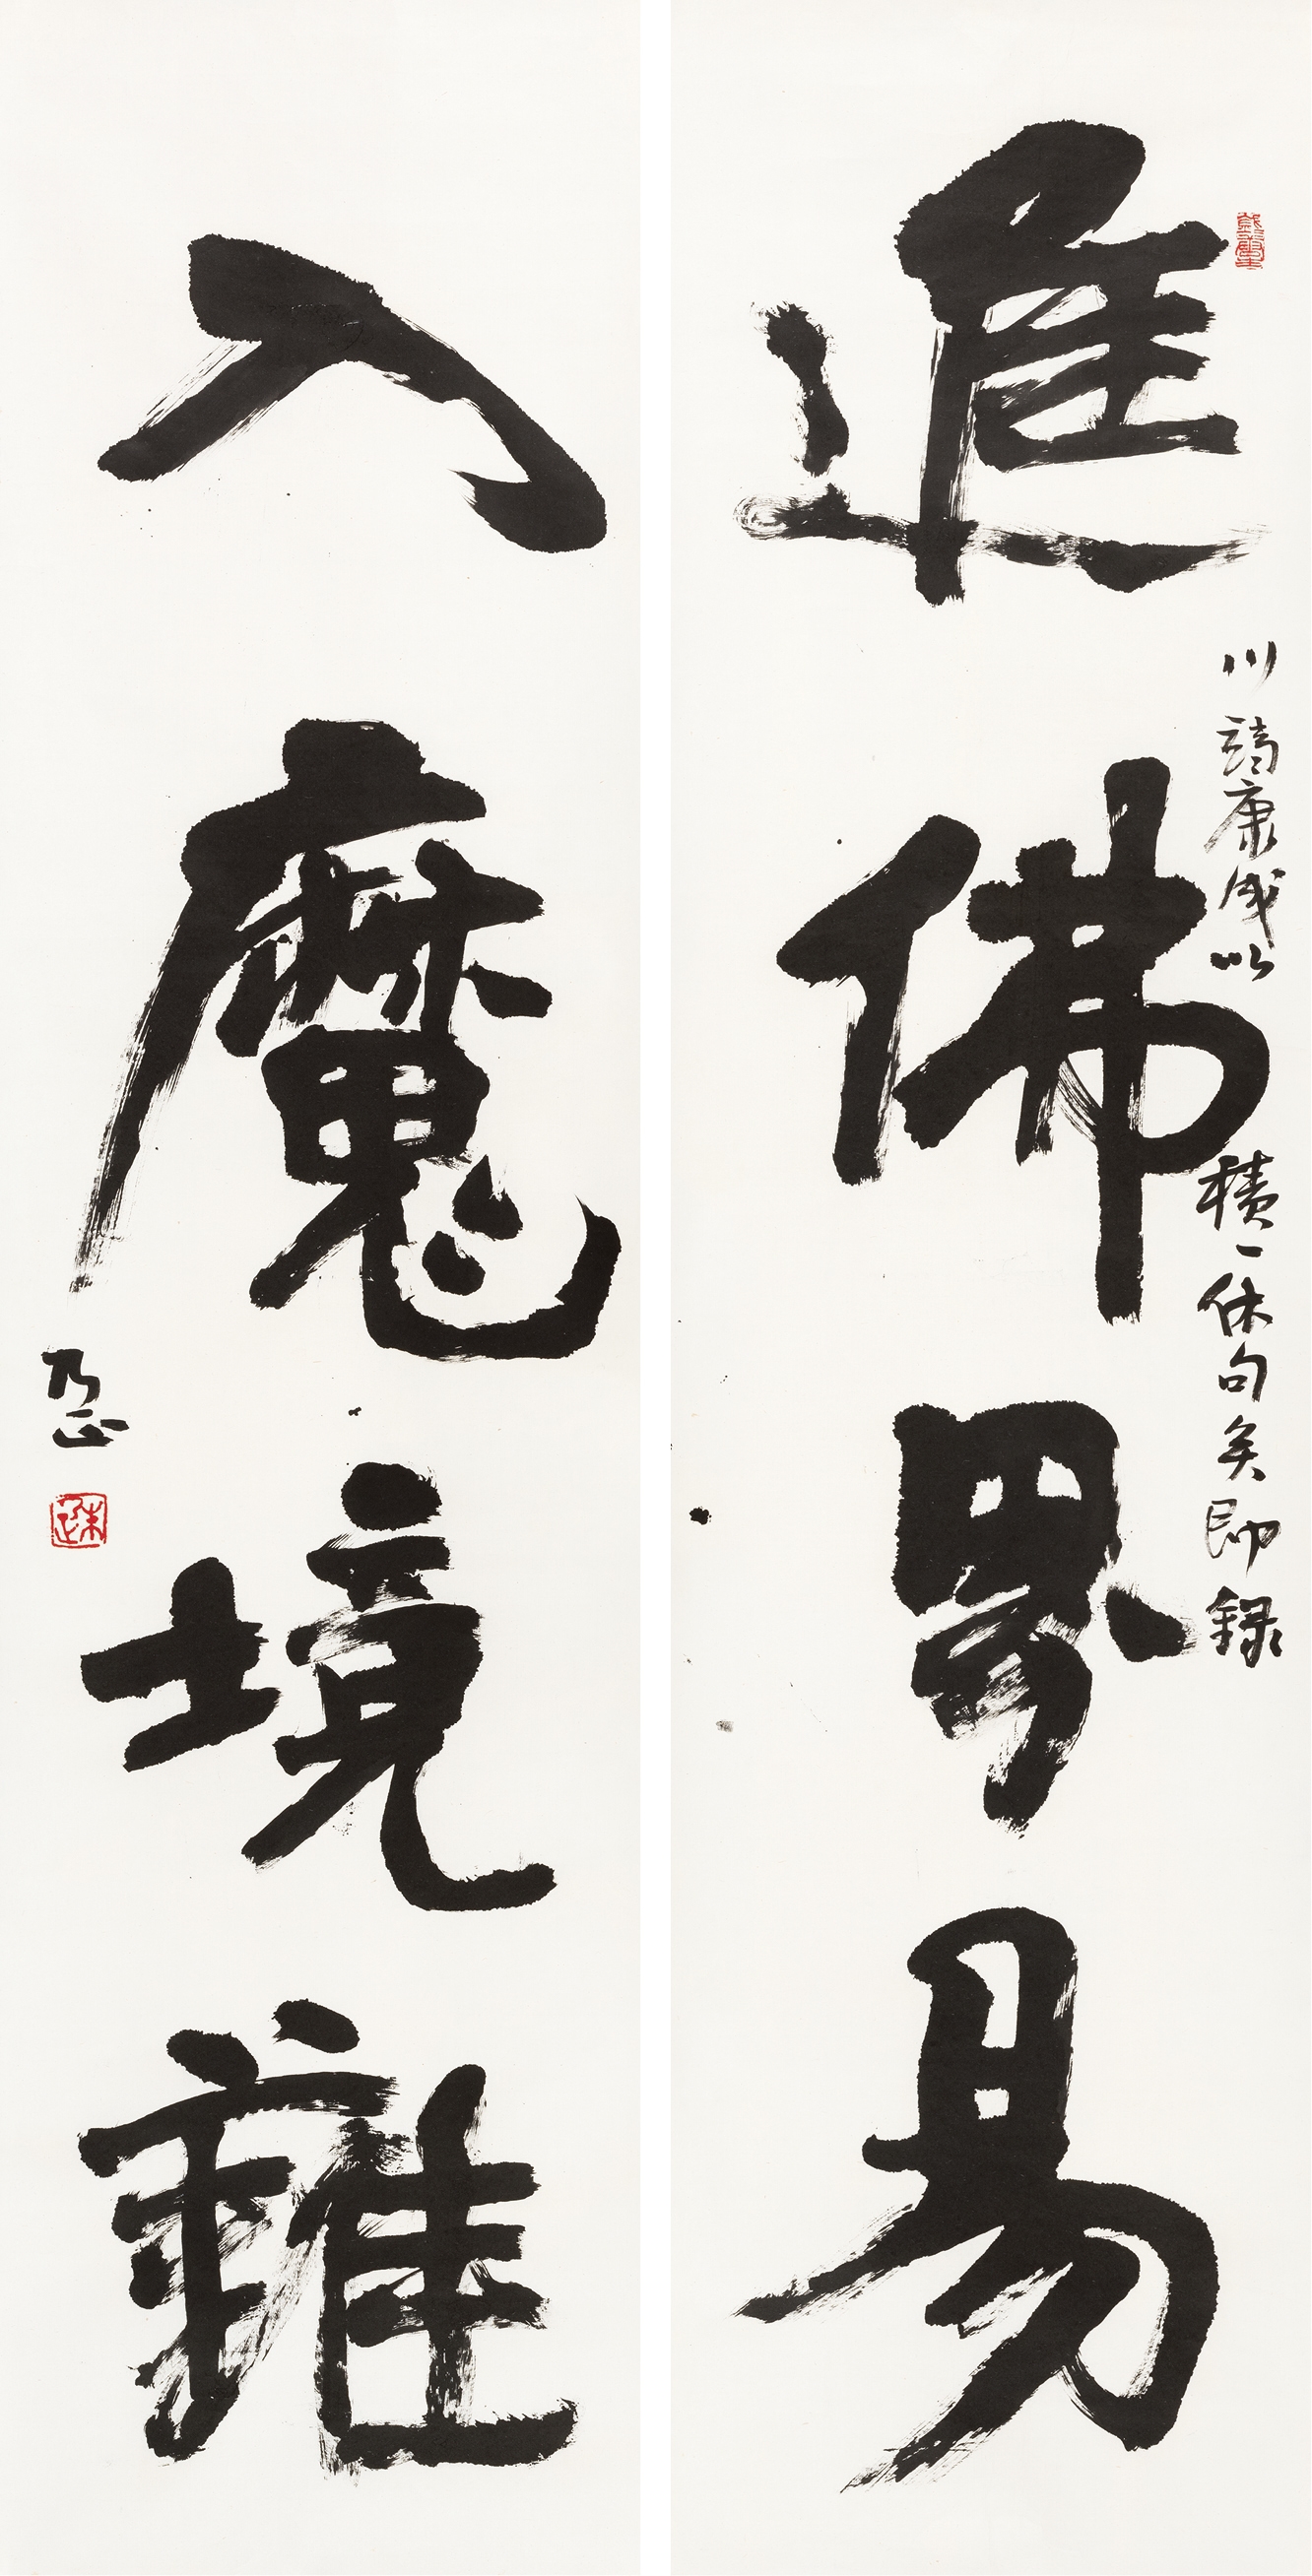 進佛界易
川端康成以積一休句矣即錄
入魔境難
乃正